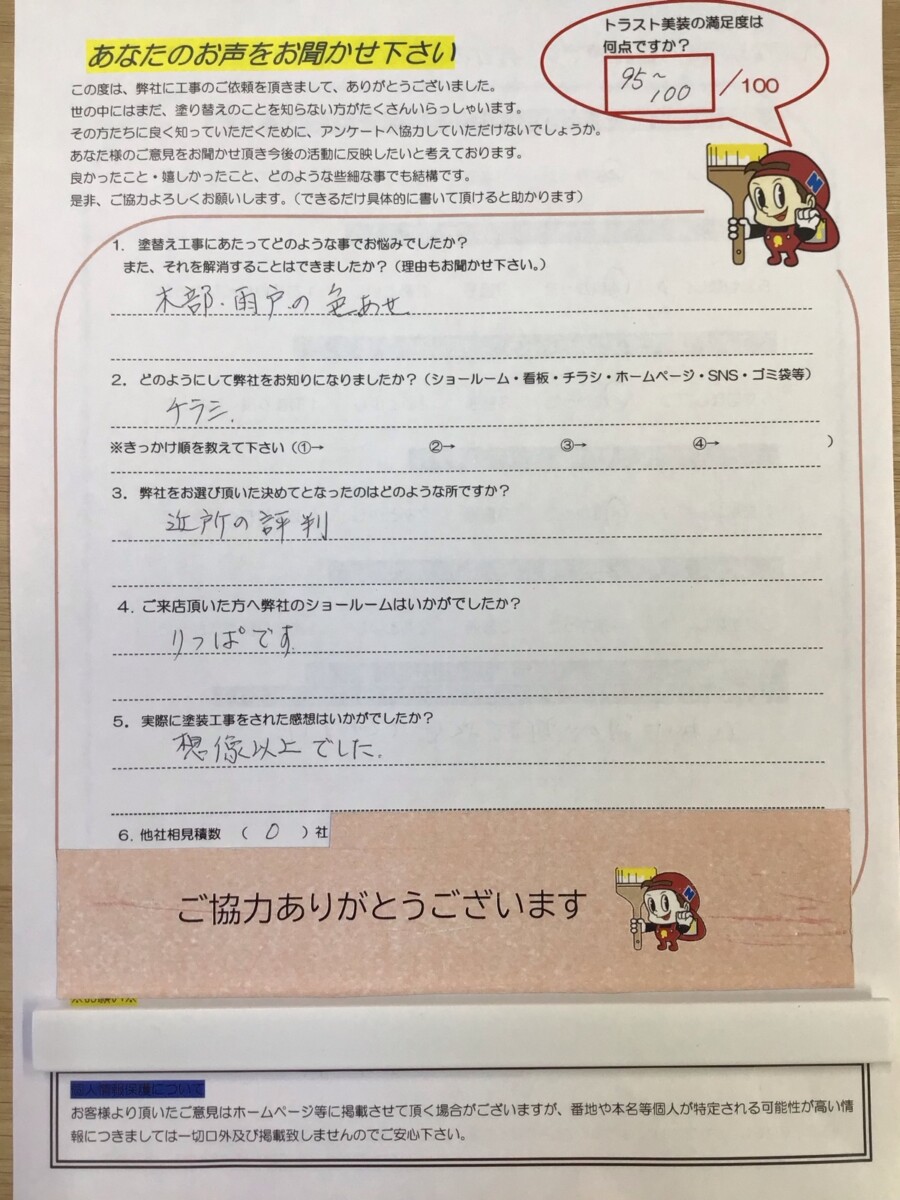 あなたのお声をお聞かせ下さい
トラスト美装の満足度は
何点ですか?
95~
100
/100
この度は、弊社に工事のご依頼を頂きまして、ありがとうございました。
世の中にはまだ、塗り替えのことを知らない方がたくさんいらっしゃいます。
その方たちに良く知っていただくために、アンケートへ協力していただけないでしょうか。
あなた様のご意見をお聞かせ頂き今後の活動に反映したいと考えております。
良かったこと・嬉しかったこと、どのような些細な事でも結構です。
是非、ご協力よろしくお願いします。(できるだけ具体的に書いて頂けると助かります)
1. 塗替え工事にあたってどのような事でお悩みでしたか?
また、それを解消することはできましたか?(理由もお聞かせ下さい。)
木部・雨戸の色あせ
2. どのようにして弊社をお知りになりましたか?(ショールーム・看板・チラシ・ホームページ・SNS・ゴミ袋等)
チラシ.
※きっかけ順を教えて下さい(①→ ②→ ③→ ④→ )
3. 弊社をお選び頂いた決めてとなったのはどのような所ですか?
近所の評判
4. ご来店頂いた方へ弊社のショールームはいかがでしたか?
りっぱです
5. 実際に塗装工事をされた感想はいかがでしたか?
想像以上でした.
6. 他社相見積数 ( 0 )社
ご協力ありがとうございます
個人情報保護について
お客様より頂いたご意見はホームページ等に掲載させて頂く場合がございますが、番地や本名等個人が特定される可能性が高い情
報につきましては一切口外及び掲載致しませんのでご安心下さい。